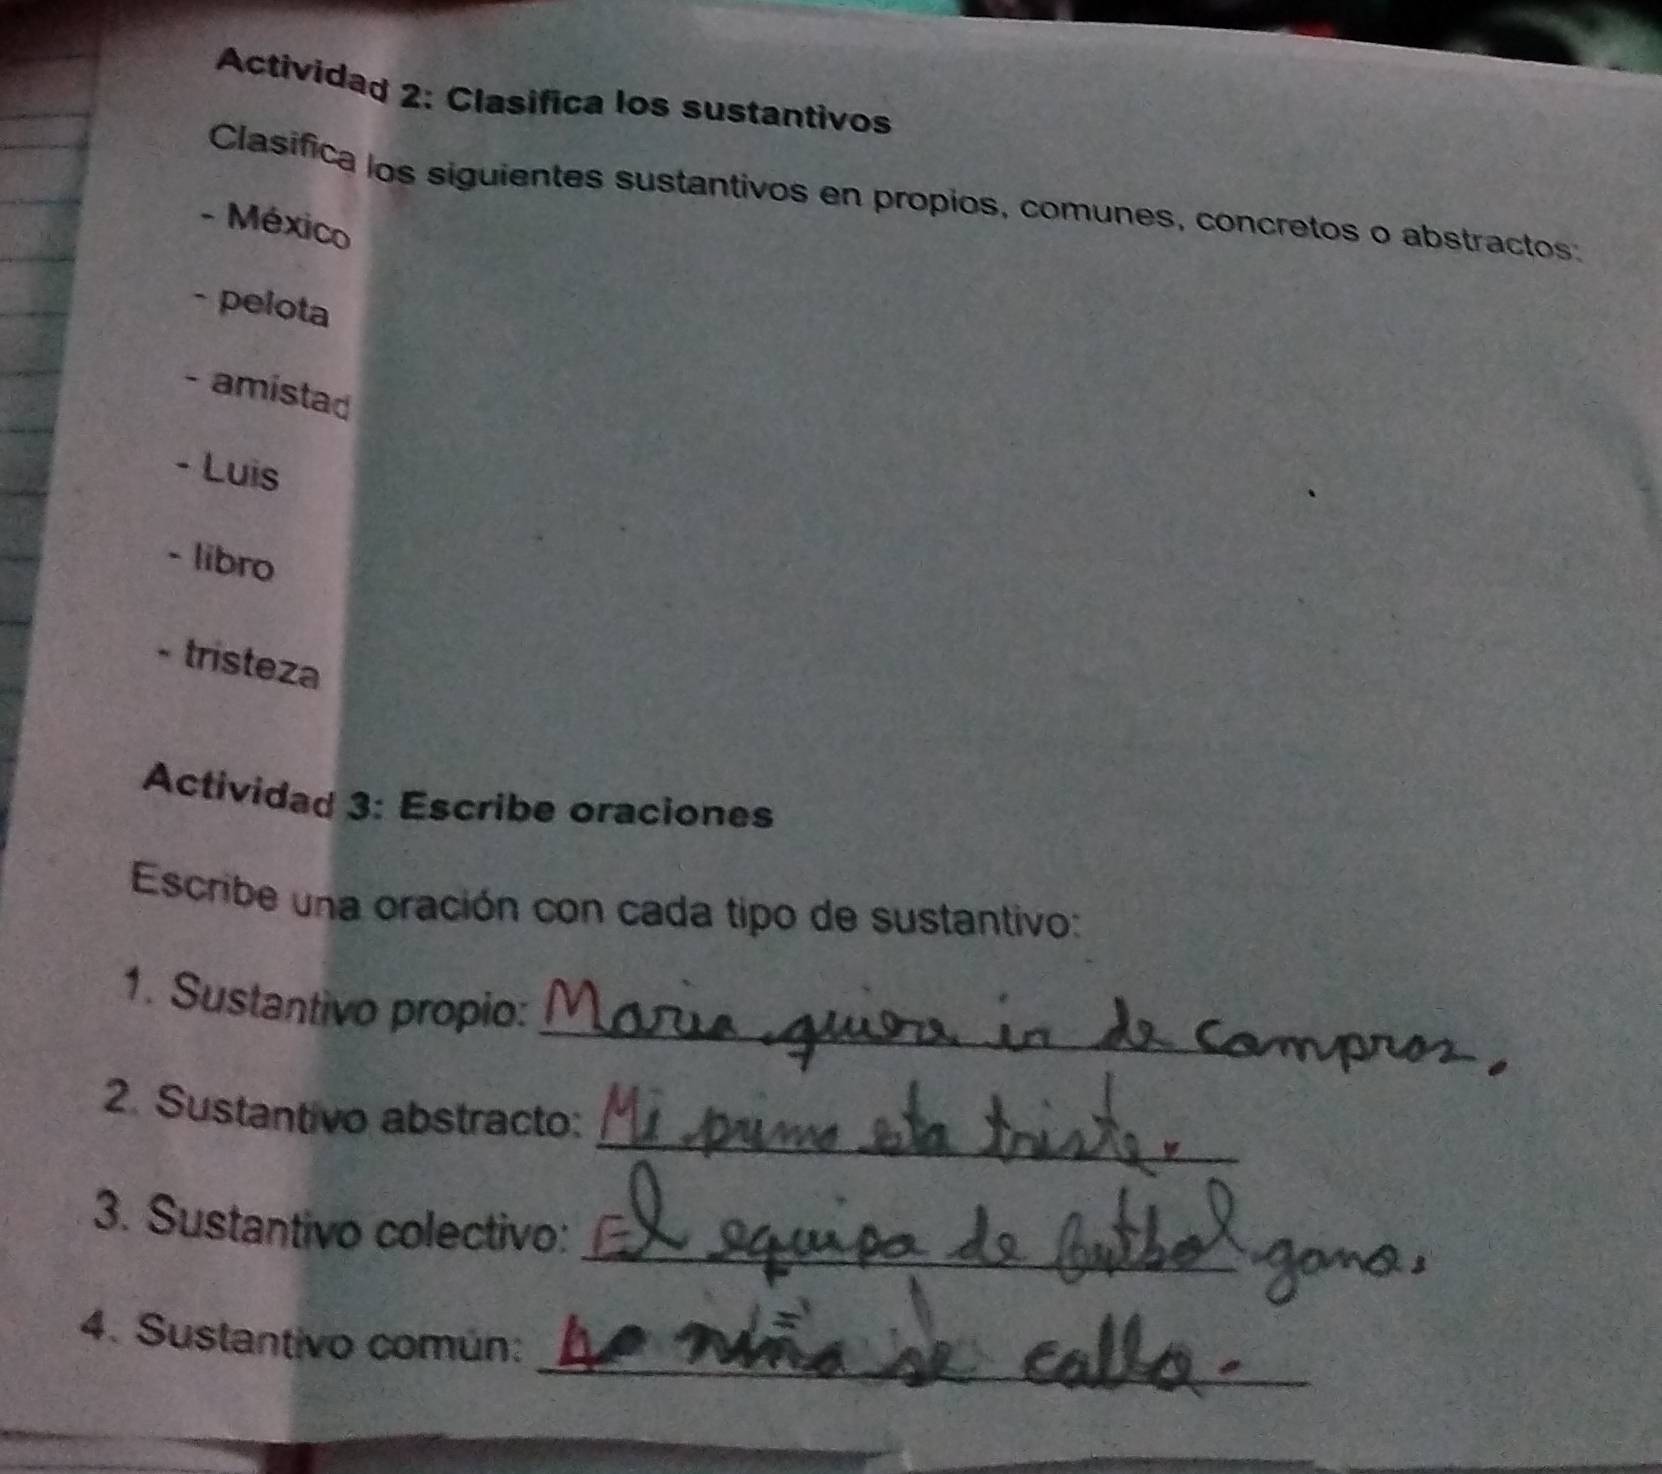 Actividad 2: Clasifica los sustantivos
Clasifica los siguientes sustantivos en propios, comunes, concretos o abstractos:
- México
- pelota
- amistad
- Luis
- libro
- tristeza
Actividad 3: Escribe oraciones
Escribe una oración con cada tipo de sustantivo:
1. Sustantivo propio: Maria quiere ir de compras.
2. Sustantivo abstracto: Mi prima esta triste.
3. Sustantivo colectivo: El equipo de futbol gano.
4. Sustantivo común: La niña se callo.